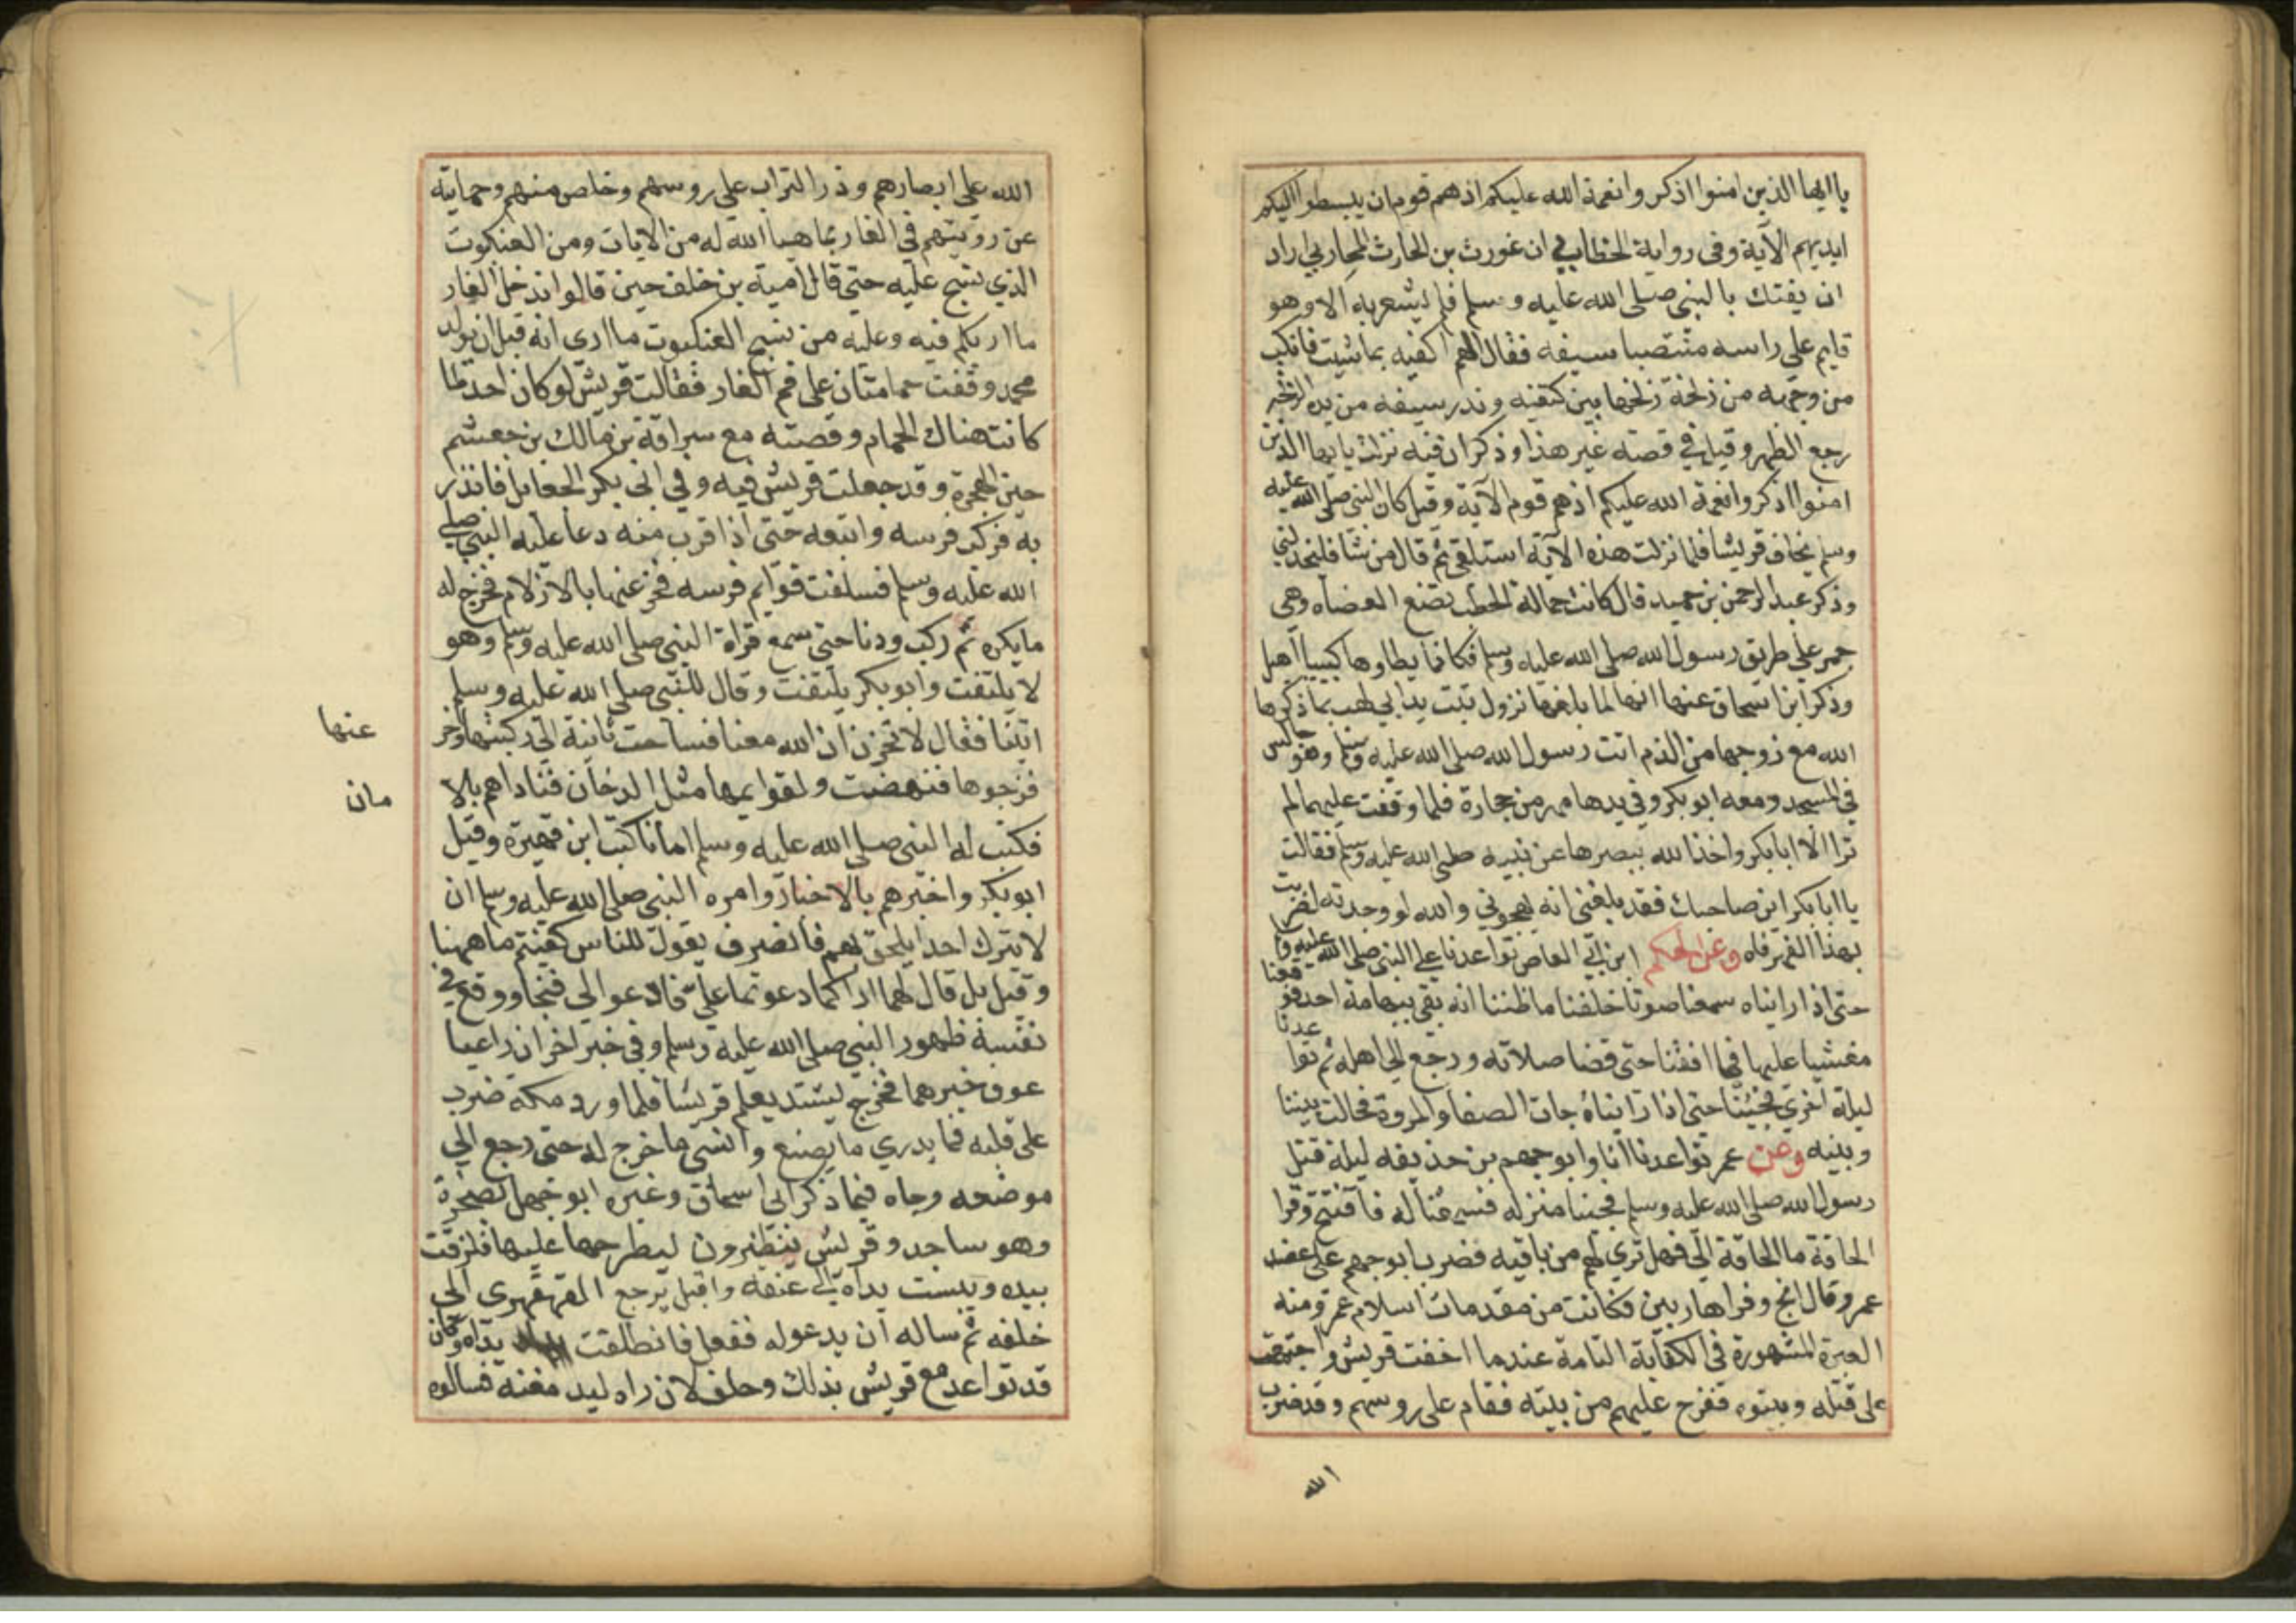 يا ايها الذين امنوا اذكروا نعمة الله عليكم اذ هم قوم ان يبسطوا اليكم
ايديهم الآية وفى رواية الخطابي ان غورث بن الحارث المحاربي اراد
ان يفتك بالنبي صلى الله عليه وسلم فلم يشعر به الا وهو
قايم على راسه منتضيا سيفه فقال اللهم اكفنيه بما شيت فانكب
من وجهه من زلخة زلخها بين كتفيه وندر سيفه من يده الزلخة
رجع الظهر وقيل في قصته غير هذا وذكر ان فيه نزلت يا ايها الذين
امنوا اذكروا نعمة الله عليكم اذ هم قوم الآية وقيل كان النبي صلى الله عليه
وسلم يخاف قريشا فلما نزلت هذه الآية استلقى ثم قال من شا فليخذلني
وذكر عبد الرحمن بن حميد قال كانت حمالة الحطب تضع العضاه وهى
جمر على طريق رسول الله صلى الله عليه وسلم فكانما يطاوها كثيبا اهيل
وذكر ابن اسحاق عنها انها لما بلغها نزول تبت يدا ابي لهب بما ذكرها
الله مع زوجها من الذم اتت رسول الله صلى الله عليه وسلم وهو جالس
في المسجد ومعه ابو بكر وفي يدها فهر من حجارة فلما وقفت عليهما لم
ترا الا ابا بكر واخذ الله ببصرها عن نبيه صلى الله عليه وسلم فقالت
يا ابا بكر اين صاحبك فقد بلغني انه يهجوني والله لو وجدته لضربت
بهذا الفهر فاه وعن الحكم ابن ابي العاص تواعدنا على النبي صلى الله عليه وسلم
حتى اذا رايناه سمعنا صوتا خلفنا ما ظننا انه بقي بتهامة احد فوقعنا
مغشيا علينا فما افقنا حتى قضا صلاته ورجع الى اهله ثم تواعدنا
ليلة اخرى فجينا حتى اذا رايناه جات الصفا والمروة فحالت بيننا
وبينه وعن عمر تواعدنا انا وابو جهم بن حذيفه ليلة قتل
رسول الله صلى الله عليه وسلم فجينا منزله فسمعنا له فافتتح وقرا
الحاقة ما الحاقة الى فهل ترى لهم من باقيه فضرب ابو جهم على عضد
عمر وقال انج وفرا هاربين فكانت من مقدمات اسلام عمر ومنه
العبرة المشهورة فى الكفاية التامة عندما اخفت قريش واجتمعت
على قتله وبيتوه فخرج عليهم من بيته فقام على روسهم وقد ضرب
الله
الله على ابصارهم وذر التراب على روسهم وخلص منهم وحمايته
عن رويتهم في الغار بما هيا الله له من الايات ومن العنكبوت
الذي نسج عليه حتى قال امية بن خلف حين قالوا ندخل الغار
ما اربكم فيه وعليه من نسج العنكبوت ما ارى انه قبل ان يولد
محمد وقفت حمامتان على فم الغار فقالت قريش لو كان احد لما
كانت هناك الحمام وقصته مع سراقة بن مالك بن جعشم
حين الهجرة وقد جعلت قريش فيه وفي ابي بكر الجعايل فانذر
به فركب فرسه واتبعه حتى اذا قرب منه دعا عليه النبي صلى
الله عليه وسلم فساخت قوايم فرسه فخر عنها بالازلام فخرج له
ما يكره ثم ركب ودنا حتى سمع قراة النبي صلى الله عليه وسلم وهو
لا يلتفت وابو بكر يلتفت وقال للنبي صلى الله عليه وسلم
اتينا فقال لا تحزن ان الله معنا فساخت ثانية الى ركبتها وخر
عنها
فزجرها فنهضت ولقوايمها مثل الدخان فناداهم بالا
مان
فكتب له النبي صلى الله عليه وسلم امانا كتبه ابن فهيرة وقيل
ابو بكر واخبرهم بالاخبار وامره النبي صلى الله عليه وسلم ان
لا يترك احدا يلحق بهم فانصرف يقول للناس كفيتم ما ههنا
وقيل بل قال لهما اراكما دعوتما علي فادعوا لي فنجا ووقع في
نفسه ظهور النبي صلى الله عليه وسلم وفي خبر اخر ان راعيا
عرف خبرهما فخرج يشتد يعلم قريشا فلما ورد مكة ضرب
على قلبه فما يدري ما يصنع وانسى ما خرج له حتى رجع الى
موضعه وجاه فيما ذكر ابن اسحاق وغيره ابو جهل بصخرة
وهو ساجد وقريش ينتظرون ليطرحها عليها فلزقت
بيده ويبست يداه الى عنقه واقبل يرجع القهقهرى الى
خلفه ثم ساله ان يدعو له ففعل فانطلقت يداه وكان
قد تواعد مع قريش بذلك وحلف لان راه ليدمغنه فسالوه